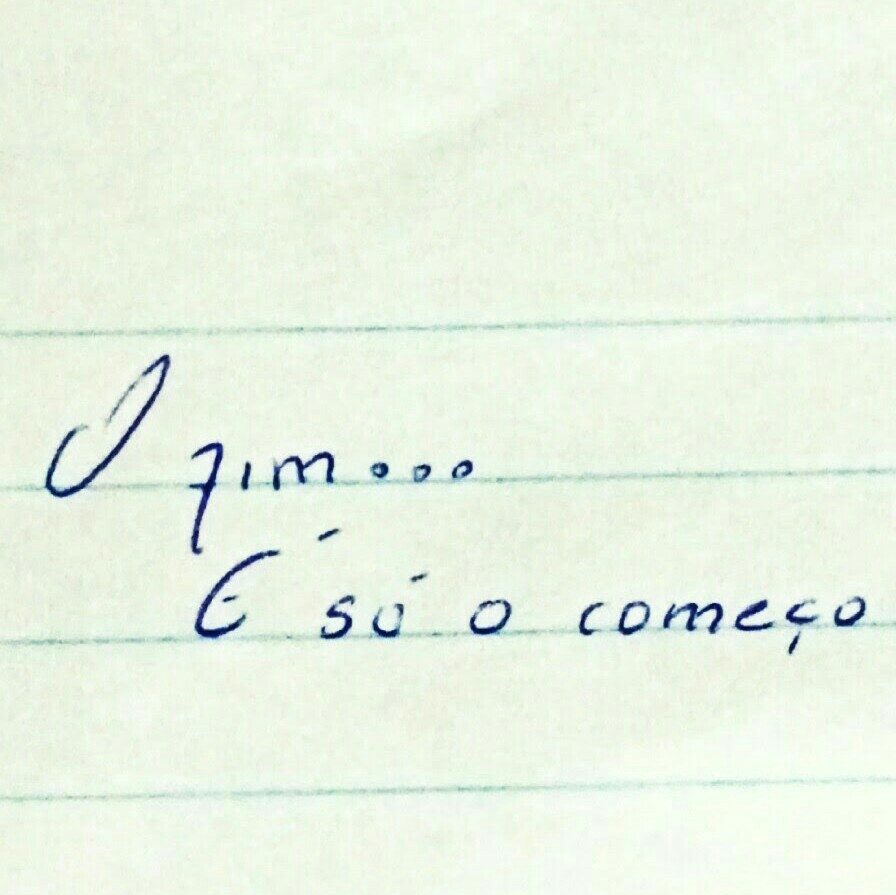 O fim...
É só o começo